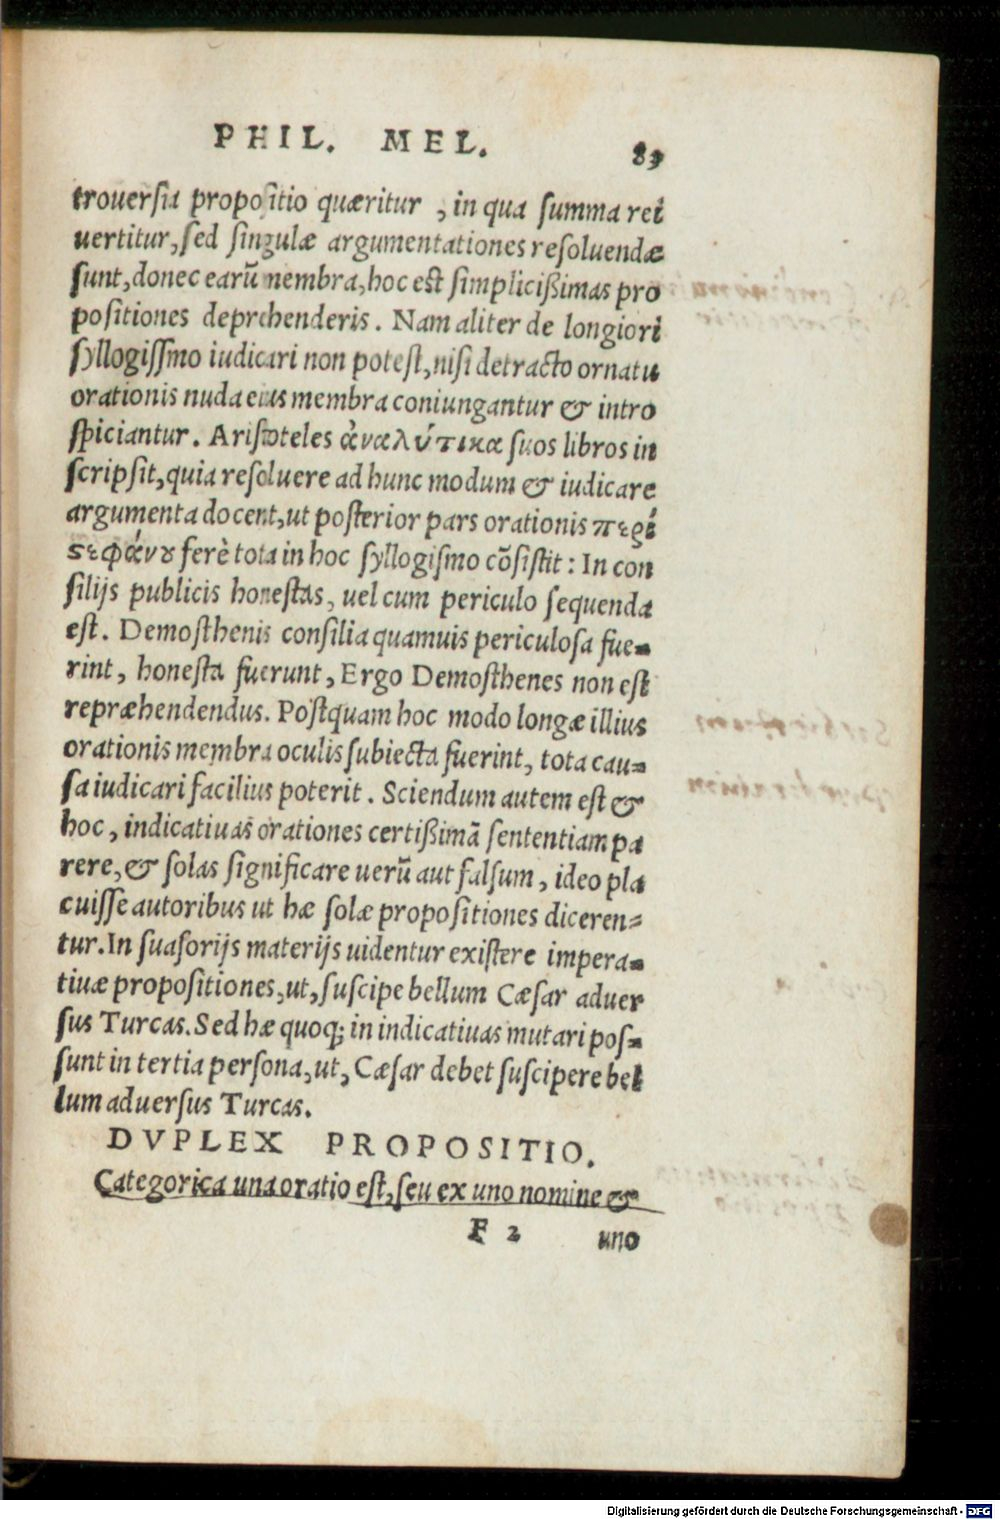 PHIL. MEL. 83
trouersia propositio quæritur, in qua summa rei
uertitur, sed singulæ argumentationes resoluendæ
sunt, donec earũ membra, hoc est simplicißimas pro
positiones deprehenderis. Nam aliter de longiori
syllogissmo iudicari non potest, nisi detracto ornatu
orationis nuda eius membra coniungantur & intro
spiciantur. Aristoteles ἀναλύτικα suos libros in
scripsit, quia resoluere ad hunc modum & iudicare
argumenta docent, ut posterior pars orationis περὶ
ϛεφάνου ferè tota in hoc syllogismo cõsistit: In con
silijs publicis honestas, uel cum periculo sequenda
est. Demosthenis consilia quamuis periculosa fue-
rint, honesta fuerunt, Ergo Demosthenes non est
repræhendendus. Postquam hoc modo longæ illius
orationis membra oculis subiecta fuerint, tota cau-
sa iudicari facilius poterit. Sciendum autem est &
hoc, indicatiuas orationes certißimã sententiam pa
rere, & solas significare uerũ aut falsum, ideo pla
cuisse autoribus ut hæ solæ propositiones diceren-
tur. In suasorijs materijs uidentur existere impera-
tiuæ propositiones, ut, suscipe bellum Cæsar aduer
sus Turcas. Sed hæ quoq; in indicatiuas mutari pos-
sunt in tertia persona, ut, Cæsar debet suscipere bel
lum aduersus Turcas.
DVPLEX PROPOSITIO.
Categorica una oratio est, seu ex uno nomine &
F 2 uno
Digitalisierung gefördert durch die Deutsche Forschungsgemeinschaft - DFG